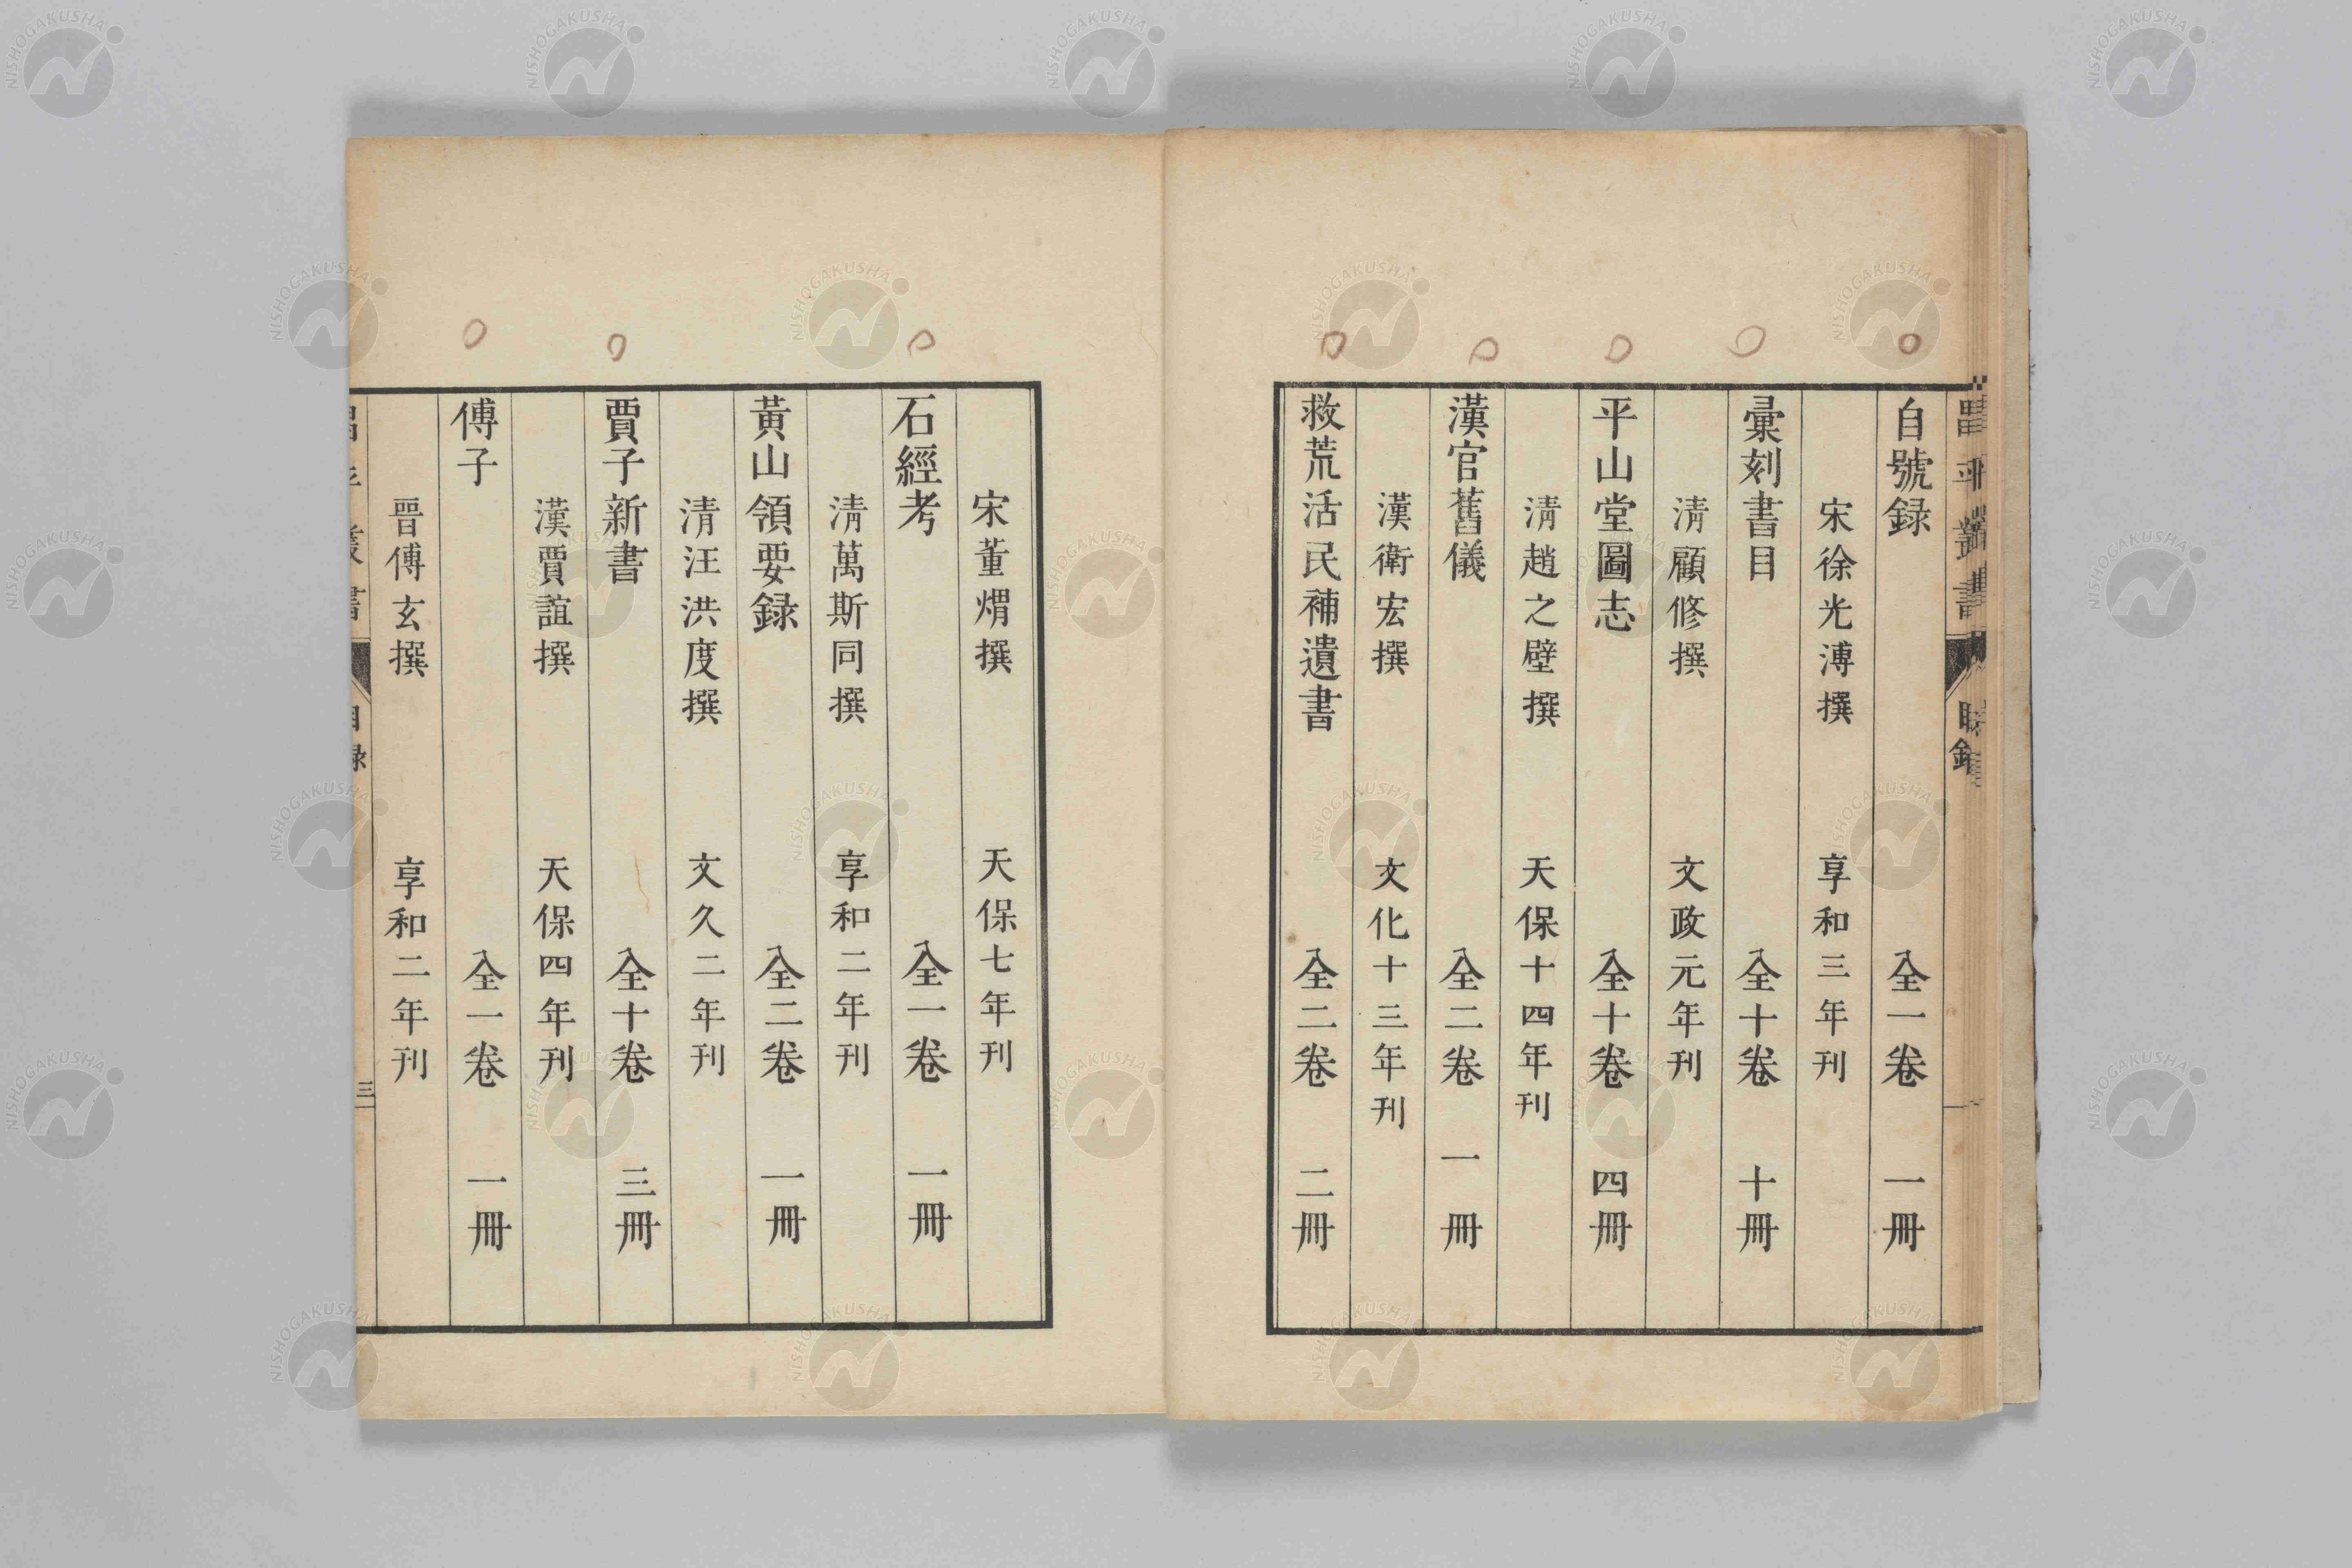 昌平叢書 目錄
自號録 全一卷 一冊
宋徐光溥撰 享和三年刋
彙刻書目 全十卷 十冊
淸顧修撰 文政元年刋
平山堂圖志 全十卷 四冊
淸趙之壁撰 天保十四年刋
漢官舊儀 全二卷 一冊
漢衛宏撰 文化十三年刋
救荒活民補遺書 全二卷 二冊
宋董煟撰 天保七年刋
石經考 全一卷 一冊
淸萬斯同撰 享和二年刋
黃山領要録 全二卷 一冊
淸汪洪度撰 文久二年刋
賈子新書 全十卷 三冊
漢賈誼撰 天保四年刋
傅子 全一卷 一冊
晉傅玄撰 享和二年刋
三
NISHOGAKUSHA